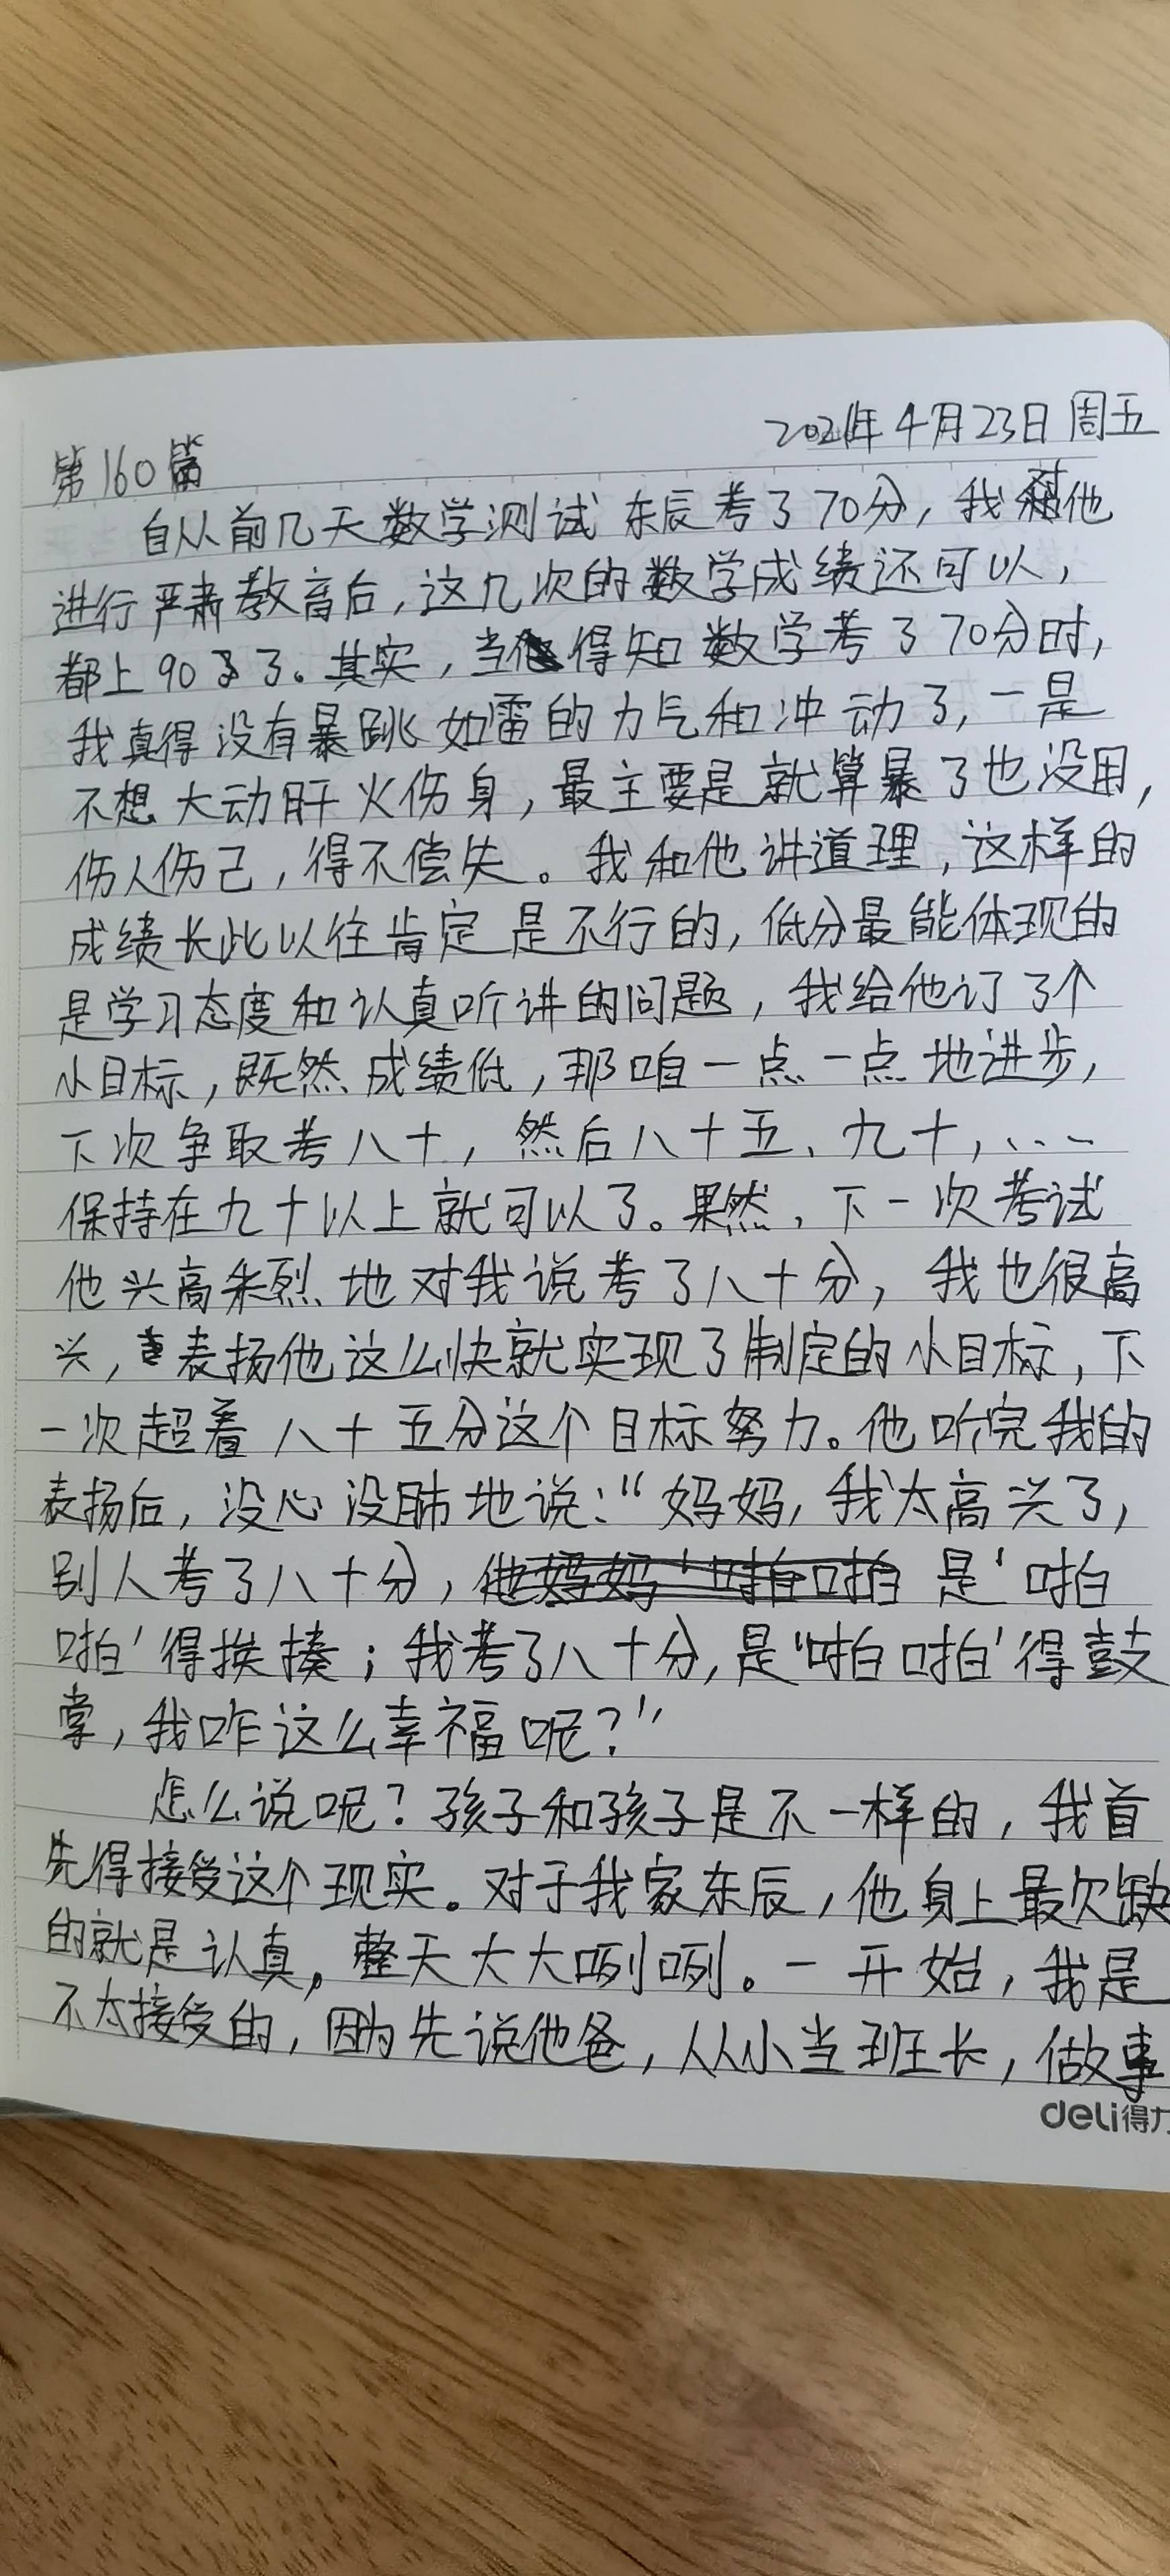 2021年4月23日 周五
第160篇
自从前几天数学测试东辰考了70分，我对他
进行严肃教育后，这几次的数学成绩还可以，
都上90多了。其实，当得知数学考了70分时，
我真得没有暴跳如雷的力气和冲动了，一是
不想大动肝火伤身，最主要是就算暴了也没用，
伤人伤己，得不偿失。我和他讲道理，这样的
成绩长此以往肯定是不行的，低分最能体现的
是学习态度和认真听讲的问题，我给他订了个
小目标，既然成绩低，那咱一点一点地进步，
下次争取考八十，然后八十五、九十，、、、
保持在九十以上就可以了。果然，下一次考试
他兴高采烈地对我说考了八十分，我也很高
兴，表扬他这么快就实现了制定的小目标，下
一次超着八十五分这个目标努力。他听完我的
表扬后，没心没肺地说：“妈妈，我太高兴了，
别人考了八十分，他妈妈‘啪啪 是‘啪
啪’得挨揍；我考了八十分，是‘啪啪’得鼓
掌，我咋这么幸福呢？”
怎么说呢？孩子和孩子是不一样的，我首
先得接受这个现实。对于我家东辰，他身上最欠缺
的就是认真，整天大大咧咧。一开始，我是
不太接受的，因为先说他爸，从小当班长，做事
deli得力